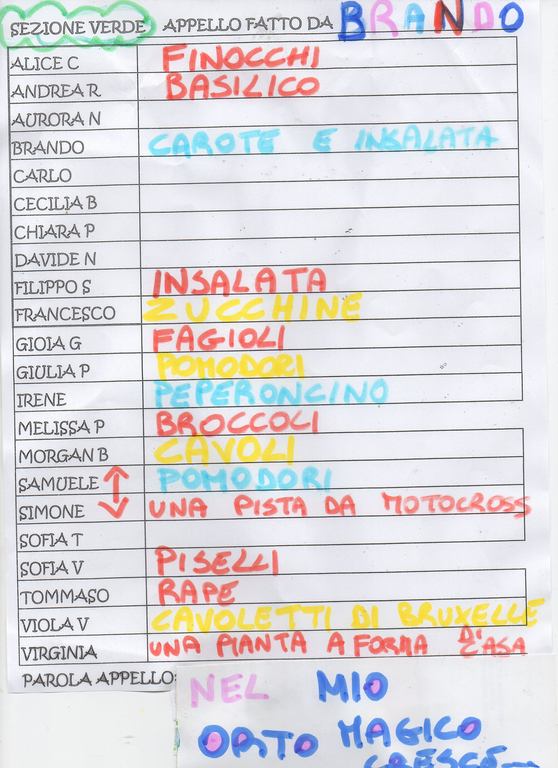 SEZIONE VERDE APPELLO FATTO DA BRANDO
ALICE C FINOCCHI
ANDREA R BASILICO
AURORA N
BRANDO CAROTE E INSALATA
CARLO
CECILIA B
CHIARA P
DAVIDE N
FILIPPO S INSALATA
FRANCESCO ZUCCHINE
GIOIA G FAGIOLI
GIULIA P POMODORI
IRENE PEPERONCINO
MELISSA P BROCCOLI
MORGAN B CAVOLI
SAMUELE POMODORI
SIMONE UNA PISTA DA MOTOCROSS
SOFIA T
SOFIA V PISELLI
TOMMASO RAPE
VIOLA V CAVOLETTI DI BRUXELLE
VIRGINIA UNA PIANTA A FORMA DI CASA
PAROLA APPELLO:
NEL MIO
ORTO MAGICO
CRESCE